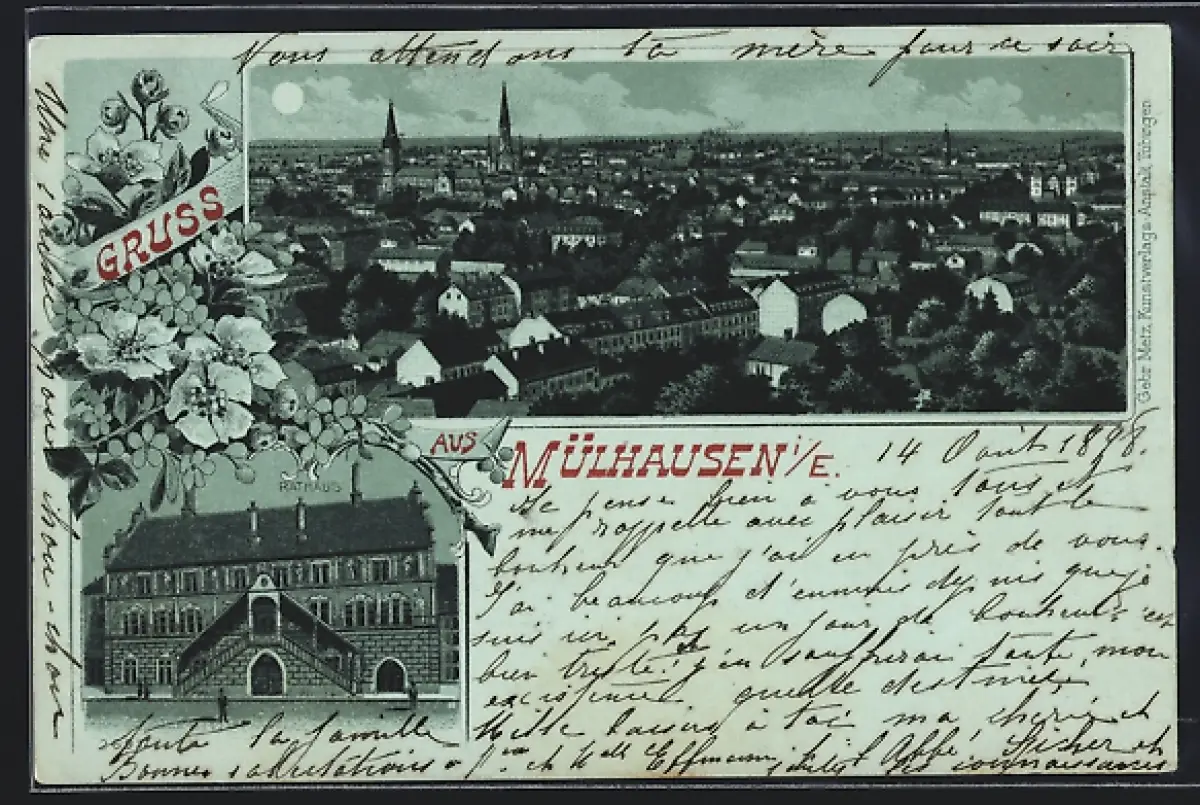 Nous attendons ta mère pour ce soir
GRUSS
AUS
MÜLHAUSEN i/E.
Gebr Metz, Kunstverlags-Anstalt, Tübingen
RATHAUS
14 Août 1898.
Je pense bien à vous tous et
me rappelle avec plaisir tout le
bonheur que j'ai eu près de vous.
J'ai beaucoup d'ennuis depuis que je
suis ici, pas un jour de bonheur c'est
bien triste, j'en souffrirai toute mon
existence quelle destinée,
Mille baisers à toi ma chérie et
toute la famille
Bonnes salutations à et Effmann l'Abbé Fischer et
les connaissances
chou-chou